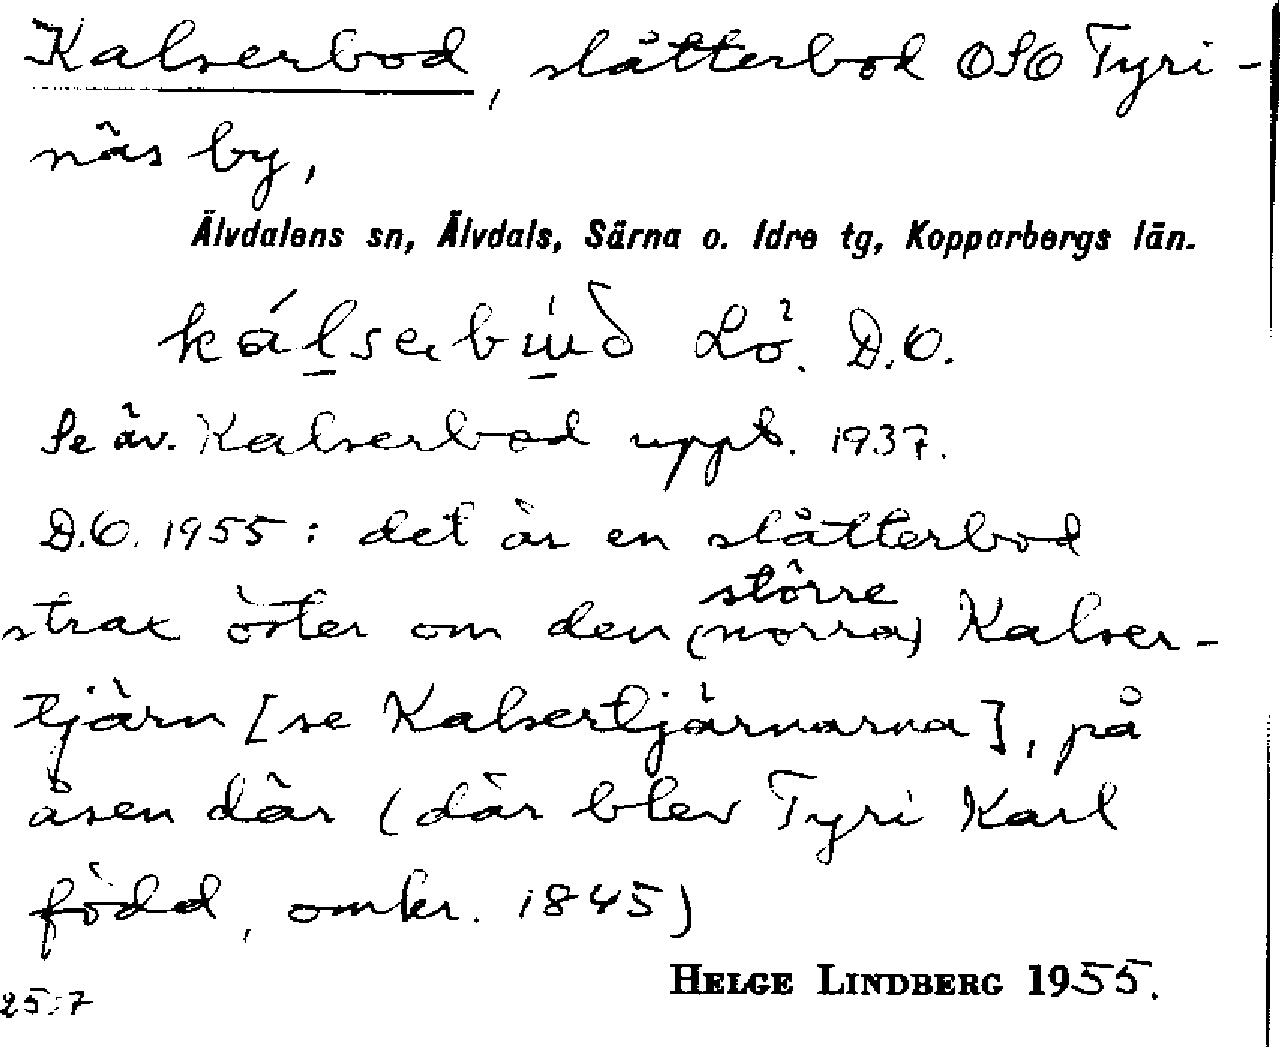 Kalserbod, slåtterbod OSO Tyri-
näs by,
Älvdalens sn, Älvdals, Särna o. Idre tg, Kopparbergs län.
Lö. D.O.
Se äv. Kalserbod uppt. 1937.
D.O. 1955: det är en slåtterbod
större
strax öster om den (norra) Kalser-
tjärn [se Kalsertjärnarna], på
åsen där (där blev Tyri Karl
född, omkr. 1845)
HELGE LINDBERG 1955.
25:7